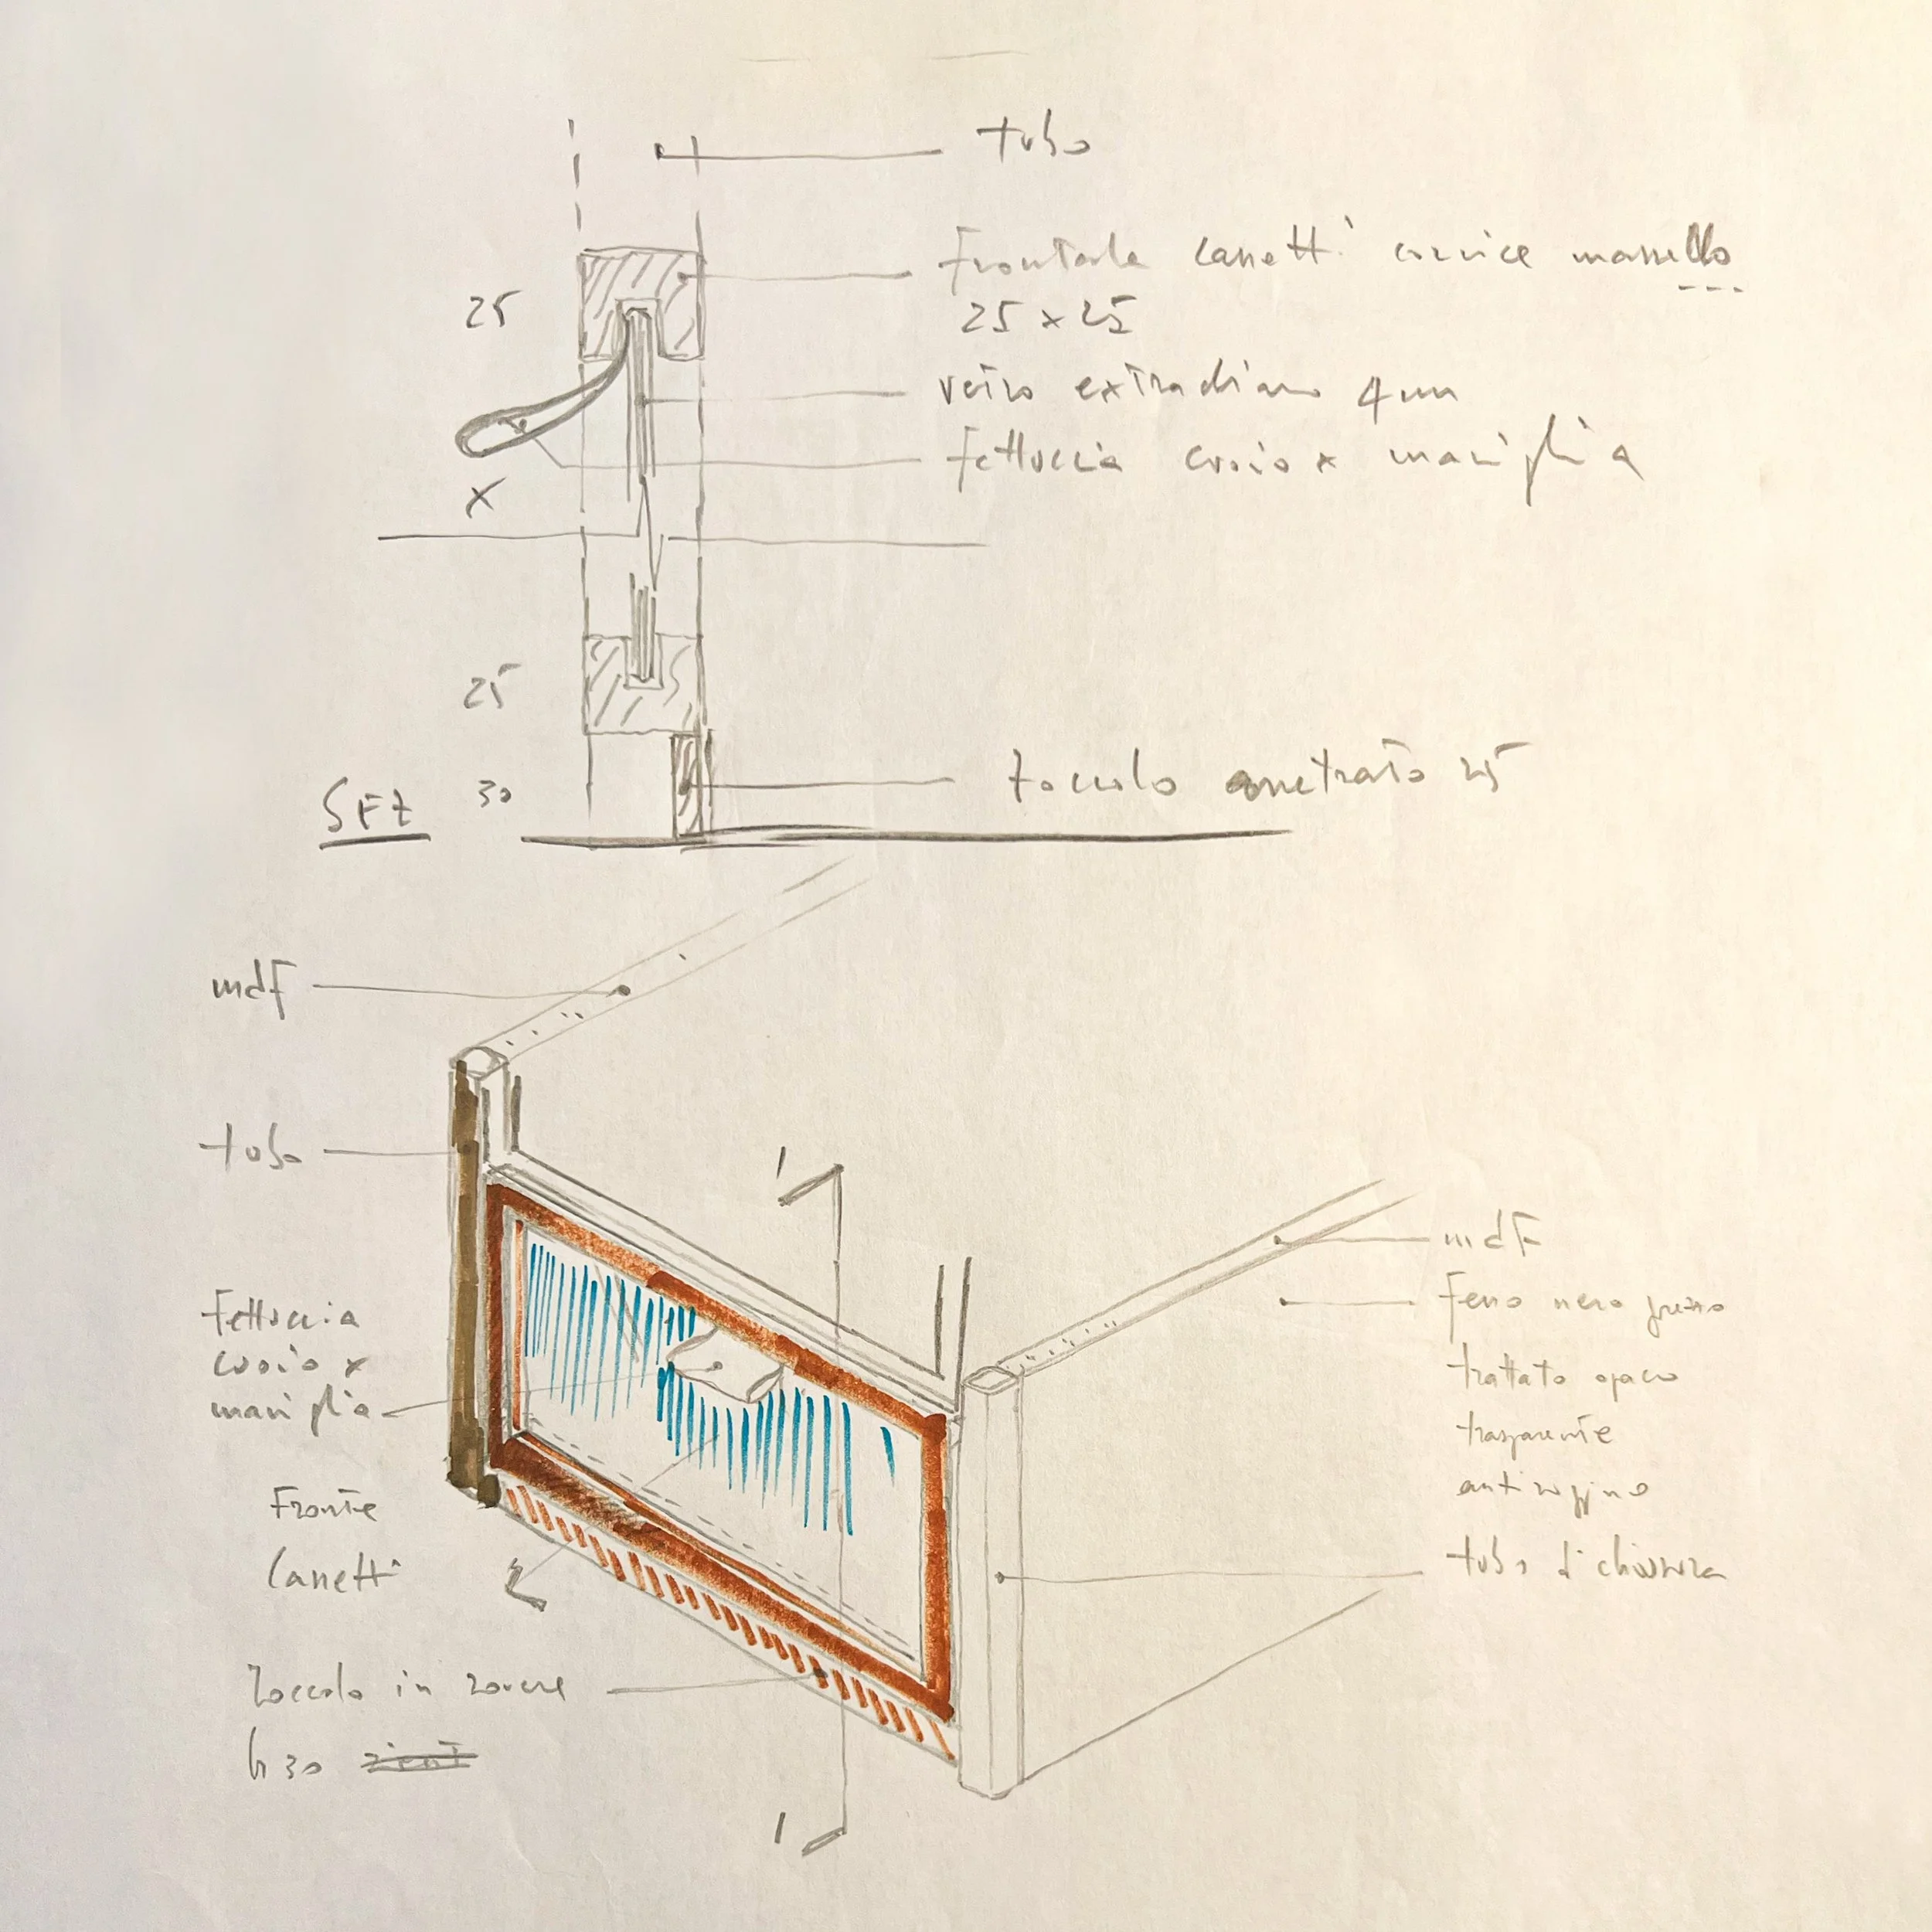 tubo
Frontale cassetti cornice massello
25
25 x 25
vetro extrachiaro 4mm
fettuccia cuoio x maniglia
X
25
zoccolo arretrato 25
SEZ
30
mdF
tubo
1
mdF
Ferro nero grezzo
Fettuccia
cuoio x
maniglia
trattato opaco
trasparente
antiruggine
Fronte
Cassetti
tubo di chiusura
Zoccolo in rovere
h 30
1